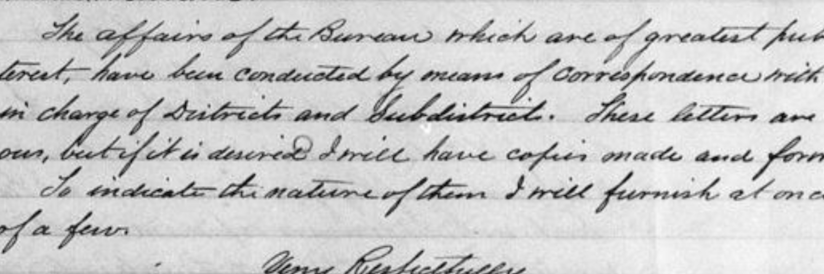 The affairs of the Bureau which are of greatest pub
terest, have been conducted by means of Correspondence with
in charge of Districts and Subdistricts. These letters are
ous, but if it is desired I will have copies made and forw
To indicate the nature of them I will furnish at onc
of a few.
Very Respectfully